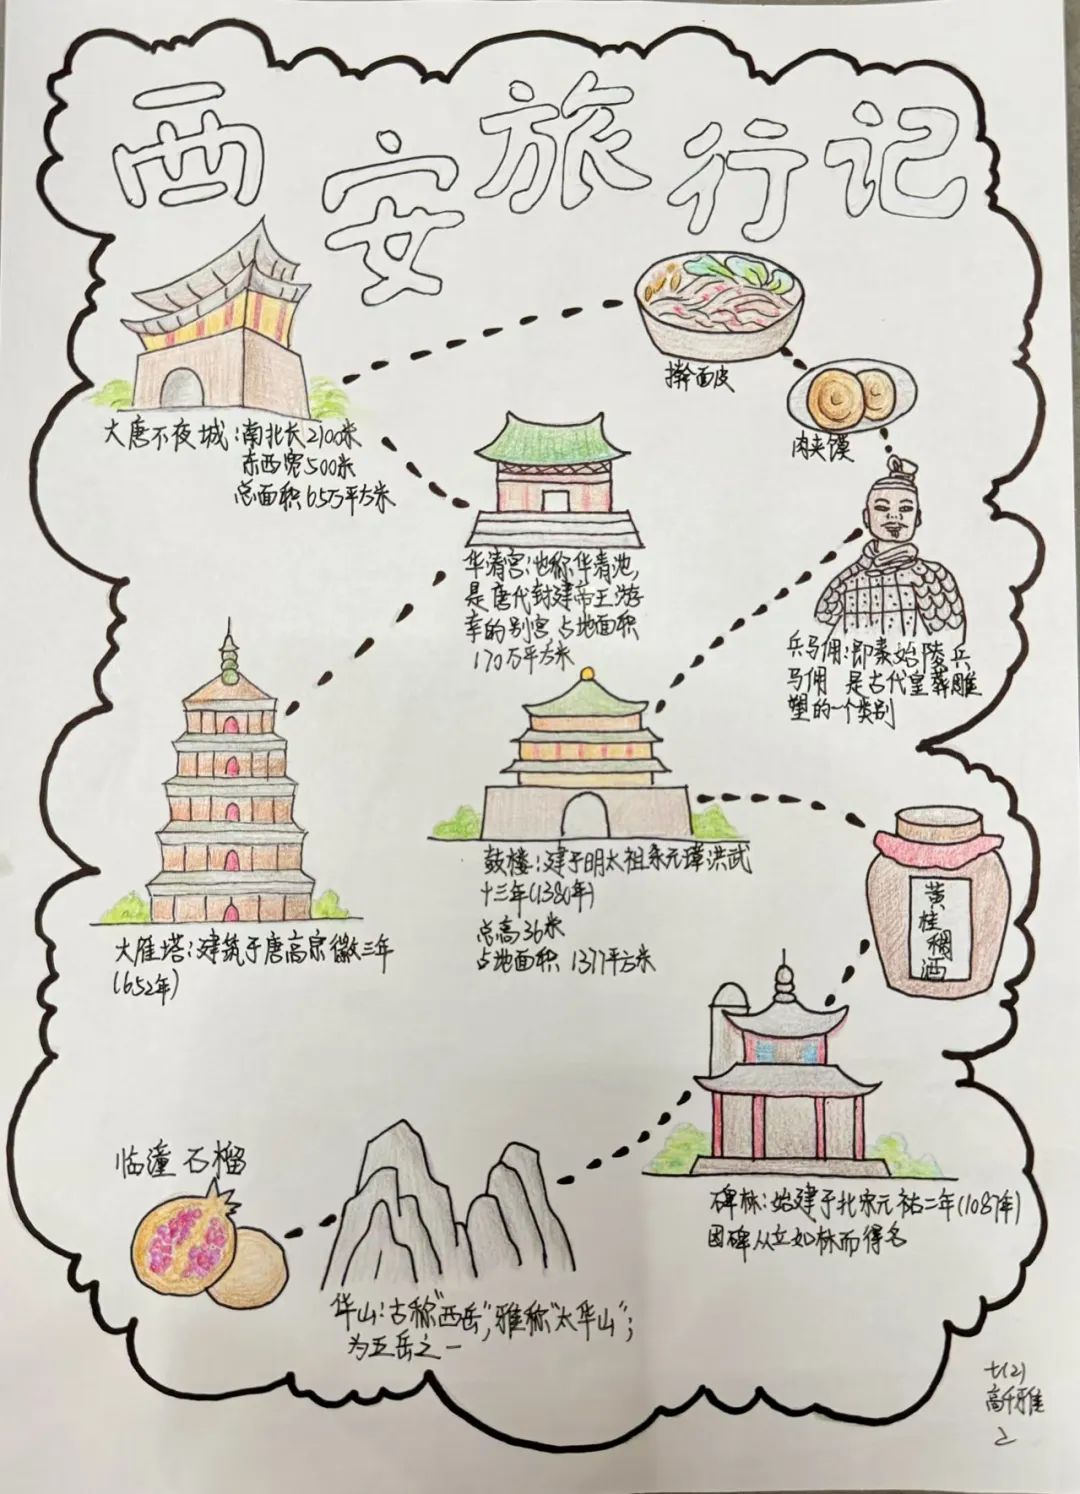 西安旅行记
擀面皮
肉夹馍
大唐不夜城：南北长2100米
东西宽500米
总面积65万平方米
华清宫：也称华清池，
是唐代封建帝王游
幸的别宫，占地面积
170万平方米
兵马俑：即秦始陵兵
马俑 是古代皇葬雕
塑的一个类别
大雁塔：建筑于唐高宗徽三年
(652年)
鼓楼：建于明太祖朱元璋洪武
十三年(1380年)
总高36米
占地面积 1377平方米
黄桂稠酒
碑林：始建于北宋元祐二年(1087年)
因碑从立如林而得名
临潼 石榴
华山：古称"西岳"，雅称"太华山"；
为五岳之一
七(2)
高千雅
2